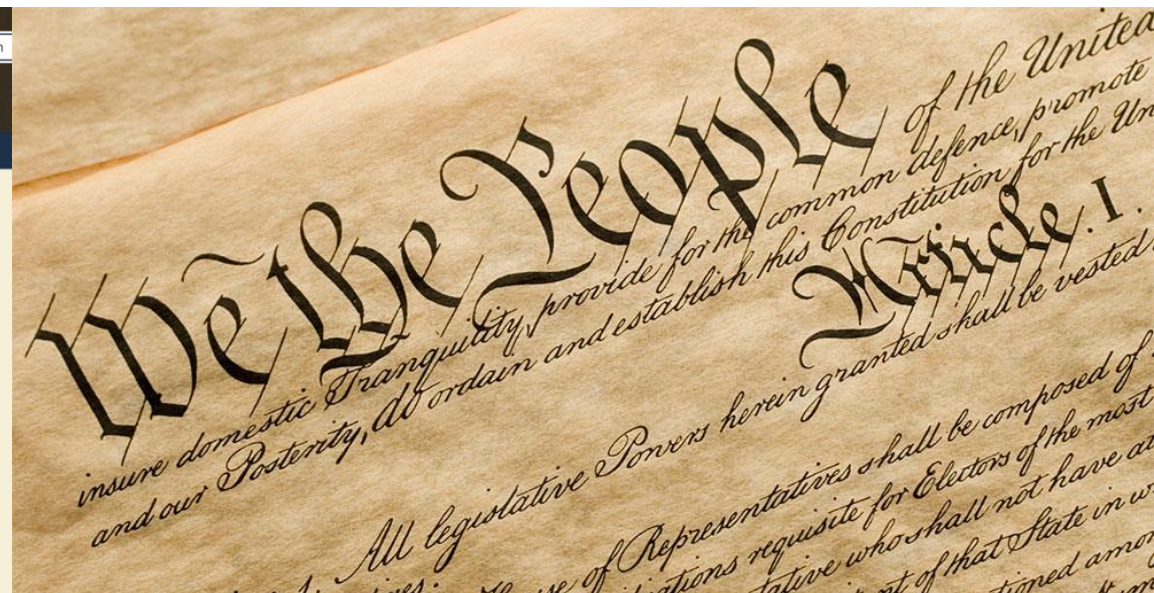 We the People of the United
insure domestic Tranquility, provide for the common defence, promote
and our Posterity, do ordain and establish this Constitution for the Un
Article. I.
All legislative Powers herein granted shall be vested
of Representatives shall be composed of
requisite for Electors of the most
who shall not have at
of that State in